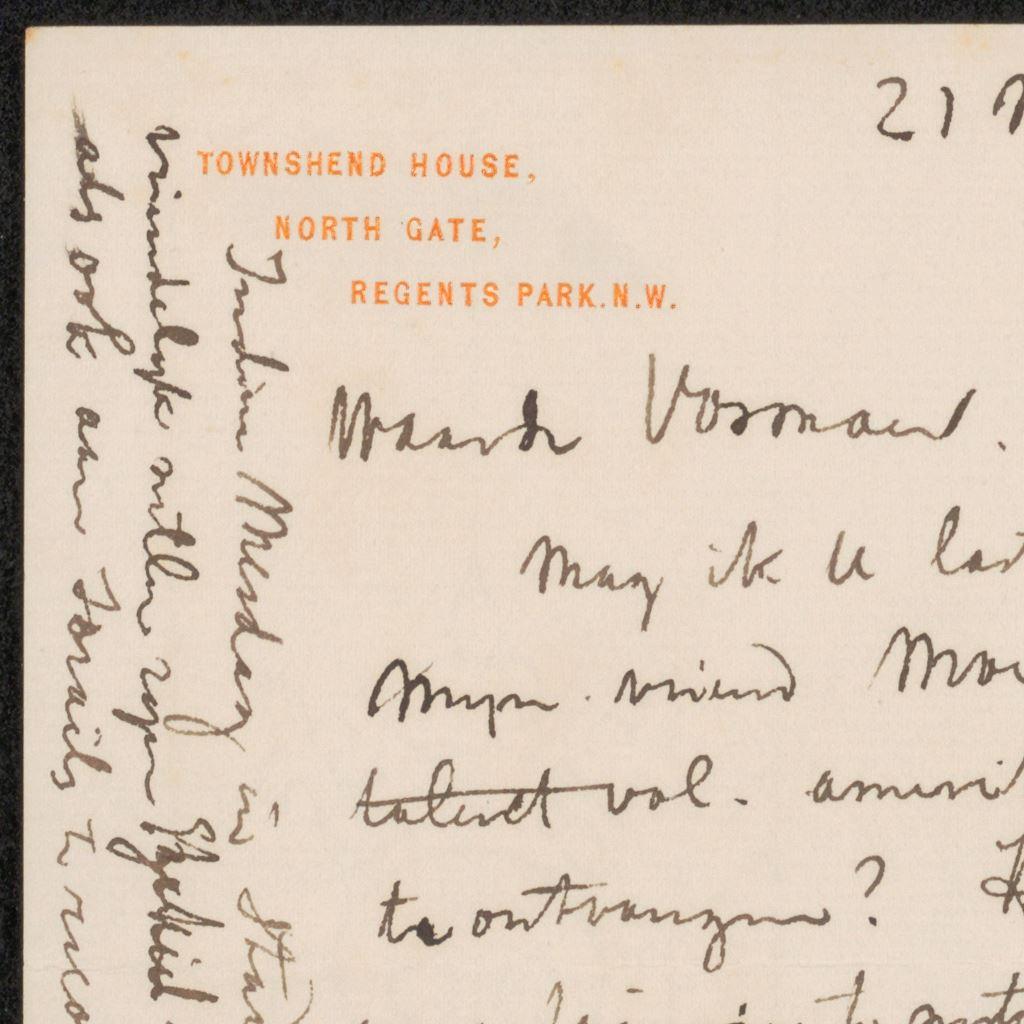 21
TOWNSHEND HOUSE,
NORTH GATE,
REGENTS PARK.N.W.
Waarde Vosmaer.
Mag ik U
Mijn vriend
talent vol.
te ontvangen?
Indien Mesdag in
vriendelijk willen zijn
als ook aan Israëls te